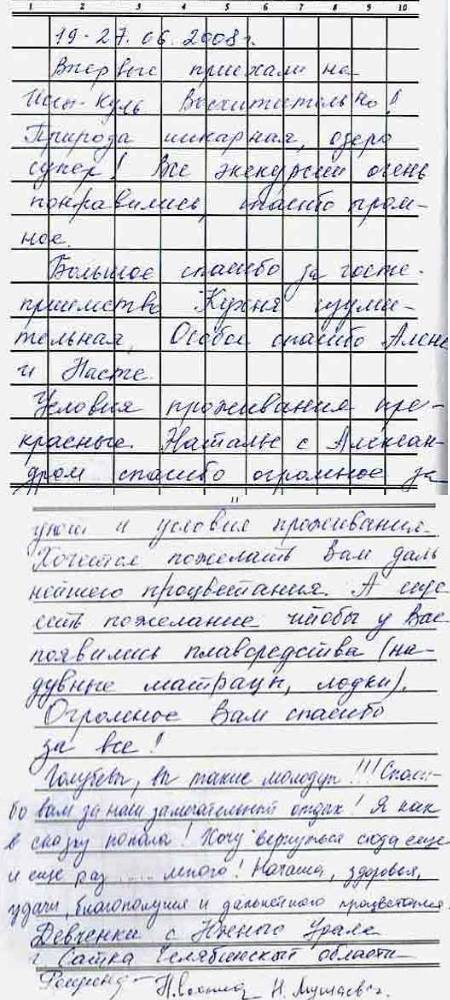 1 2 3 4 5 6 7 8 9 10
19-27.06.2008г.
Впервые приехали на
Иссы-Куль Восхитительно!!
Природа шикарная, озеро
супер! Все экскурсии очень
понравились, спасибо гром-
ное.
Большое спасибо за госте-
приимство. Кухня изуми-
тельная. Особое спасибо Алене
и Насте.
Условия проживания пре-
красные. Наталье с Алексан-
дром спасибо огромное за
уют и условия проживания.
Хочется пожелать Вам даль
нейшего процветания. А еще
есть пожелание чтобы у Вас
появились плавсредства (на-
дувные матрацы, лодки).
Огромное Вам спасибо
за все!
Голубевы, вы такие молодцы!!! Спаси-
бо вам за наш замечательный отдых! Я как
в сказку попала! Хочу вернуться сюда еще
и еще раз ..... много! Наташа, здоровья,
удачи, благополучия и дальнейшего процветания.
Девченки с Южного Урала
г. Сатка Челябинской области
Н.